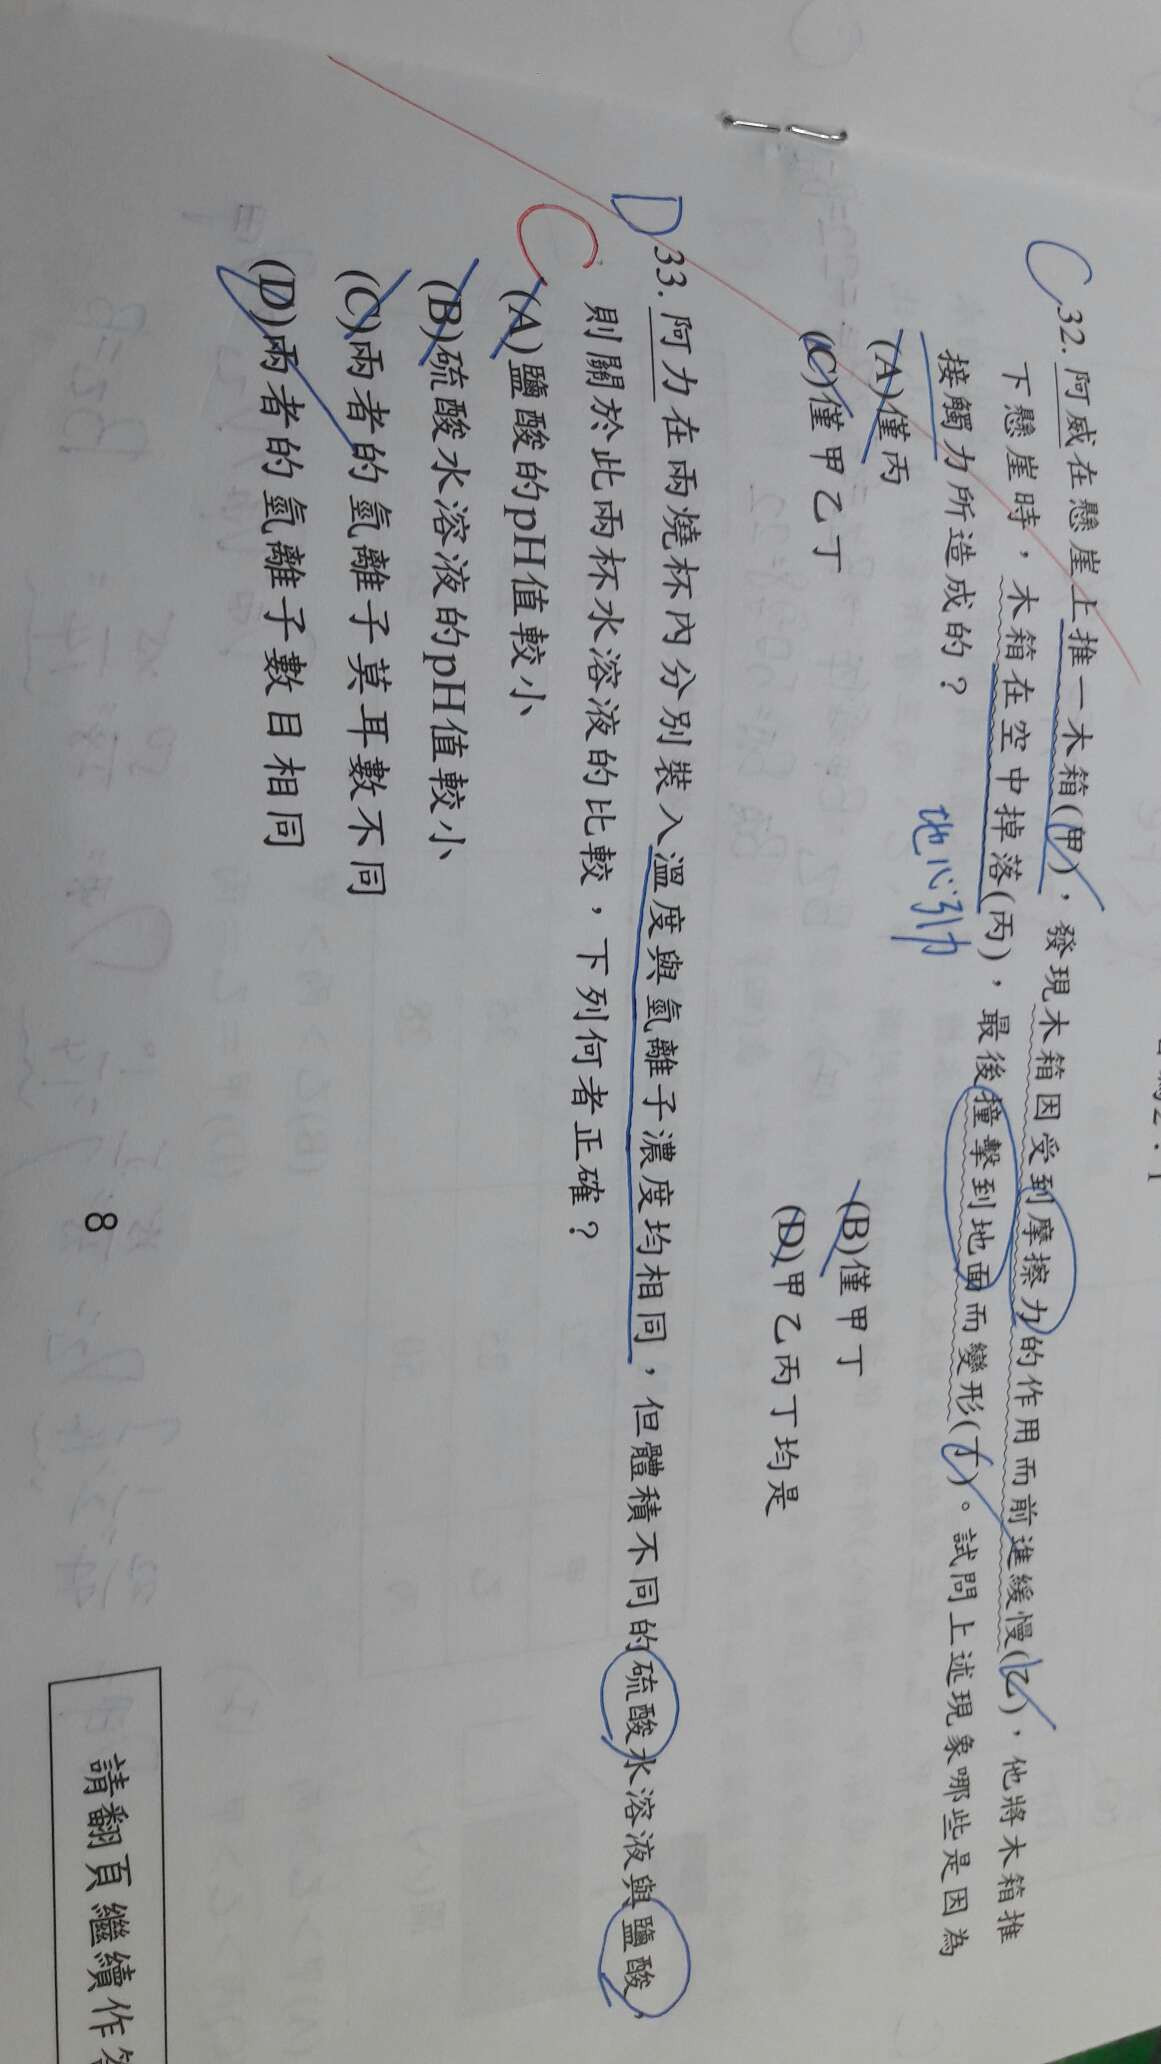 C 32. 阿威在懸崖上推一木箱(甲)，發現木箱因受到摩擦力的作用而前進緩慢(乙)，他將木箱推
下懸崖時，木箱在空中掉落(丙)，最後撞擊到地面而變形(丁)。試問上述現象哪些是因為
接觸力所造成的？
地心引力
(A)僅丙
(B)僅甲丁
(C)僅甲乙丁
(D)甲乙丙丁均是
D 33. 阿力在兩燒杯內分別裝入溫度與氫離子濃度均相同，但體積不同的硫酸水溶液與鹽酸，
則關於此兩杯水溶液的比較，下列何者正確？
C
(A)鹽酸的pH值較小
(B)硫酸水溶液的pH值較小
(C)兩者的氫離子莫耳數不同
(D)兩者的氫離子數目相同
8
請翻頁繼續作答